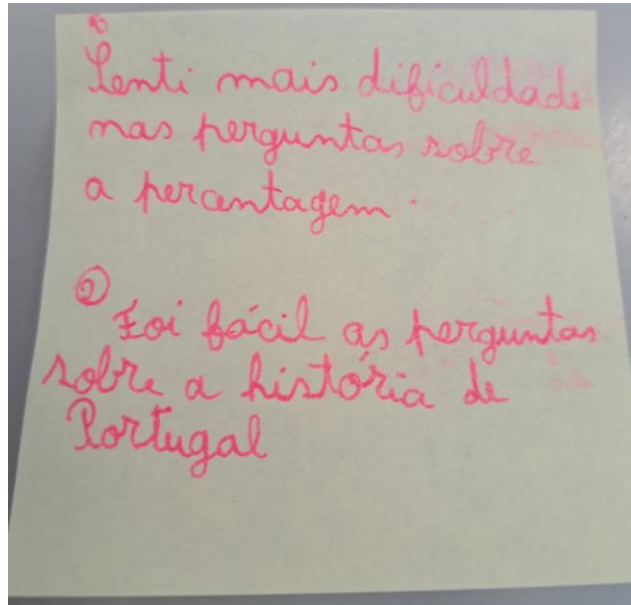 ①
Senti mais dificuldade
nas perguntas sobre
a percentagem.
②
Foi fácil as perguntas
sobre a história de
Portugal